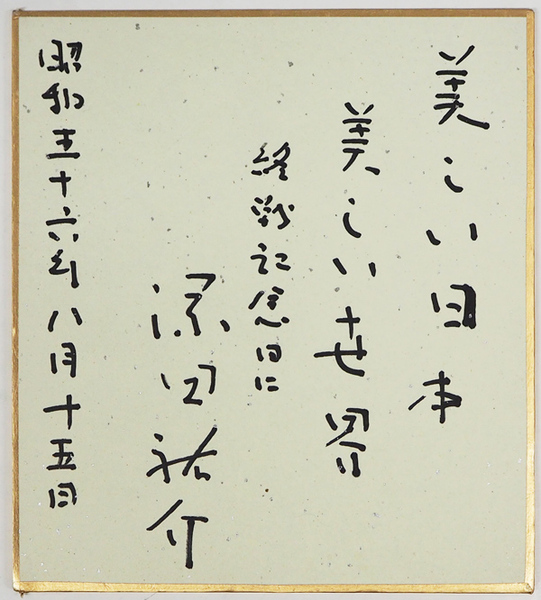 美しい日本
美しい世界
終戦記念日に
深田祐介
昭和五十六年八月十五日